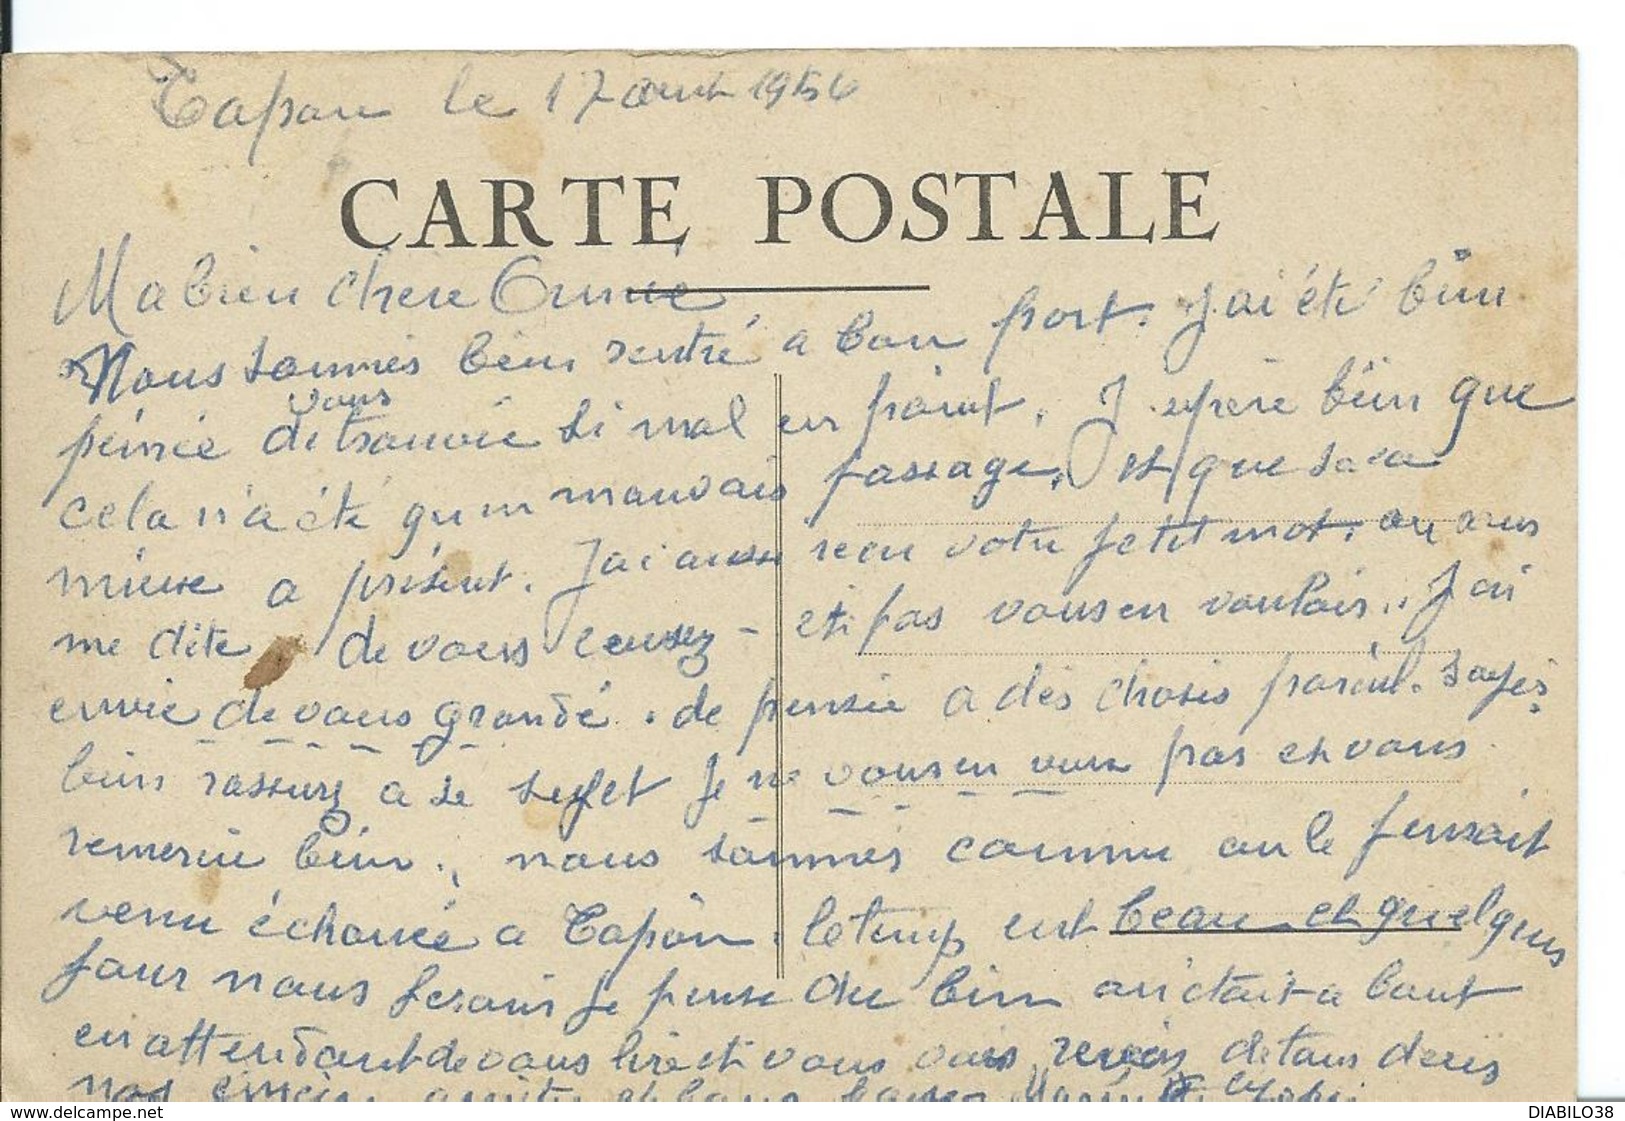 Tapon le 17 aout 1956
CARTE POSTALE
Ma bien chère Ormée
Nous sommes bien rentré a bon port. J'ai été bien
peinée de vous trouvée si mal en point. J'espère bien que
cela n'a été qu'un mauvais passage, et que sa va
mieux a présent. J'ai aussi recu votre petit mot. on ons
me dite de vous excusez - et pas vous en vouloir. J'ai
envie de vous grondé. de pensée a des choses pareil. soyés
bien rassurez a se sujet je ne vous en veux pas et vous
remercie bien. nous sommes comme on le pensait
venu échouée a Tapon. le temps est beau et quelques
jour nous ferons je pense du bien on était a bout
en attendant de vous lire et vous revoir de tous
nos amitié et bons baiser
DIABILO38